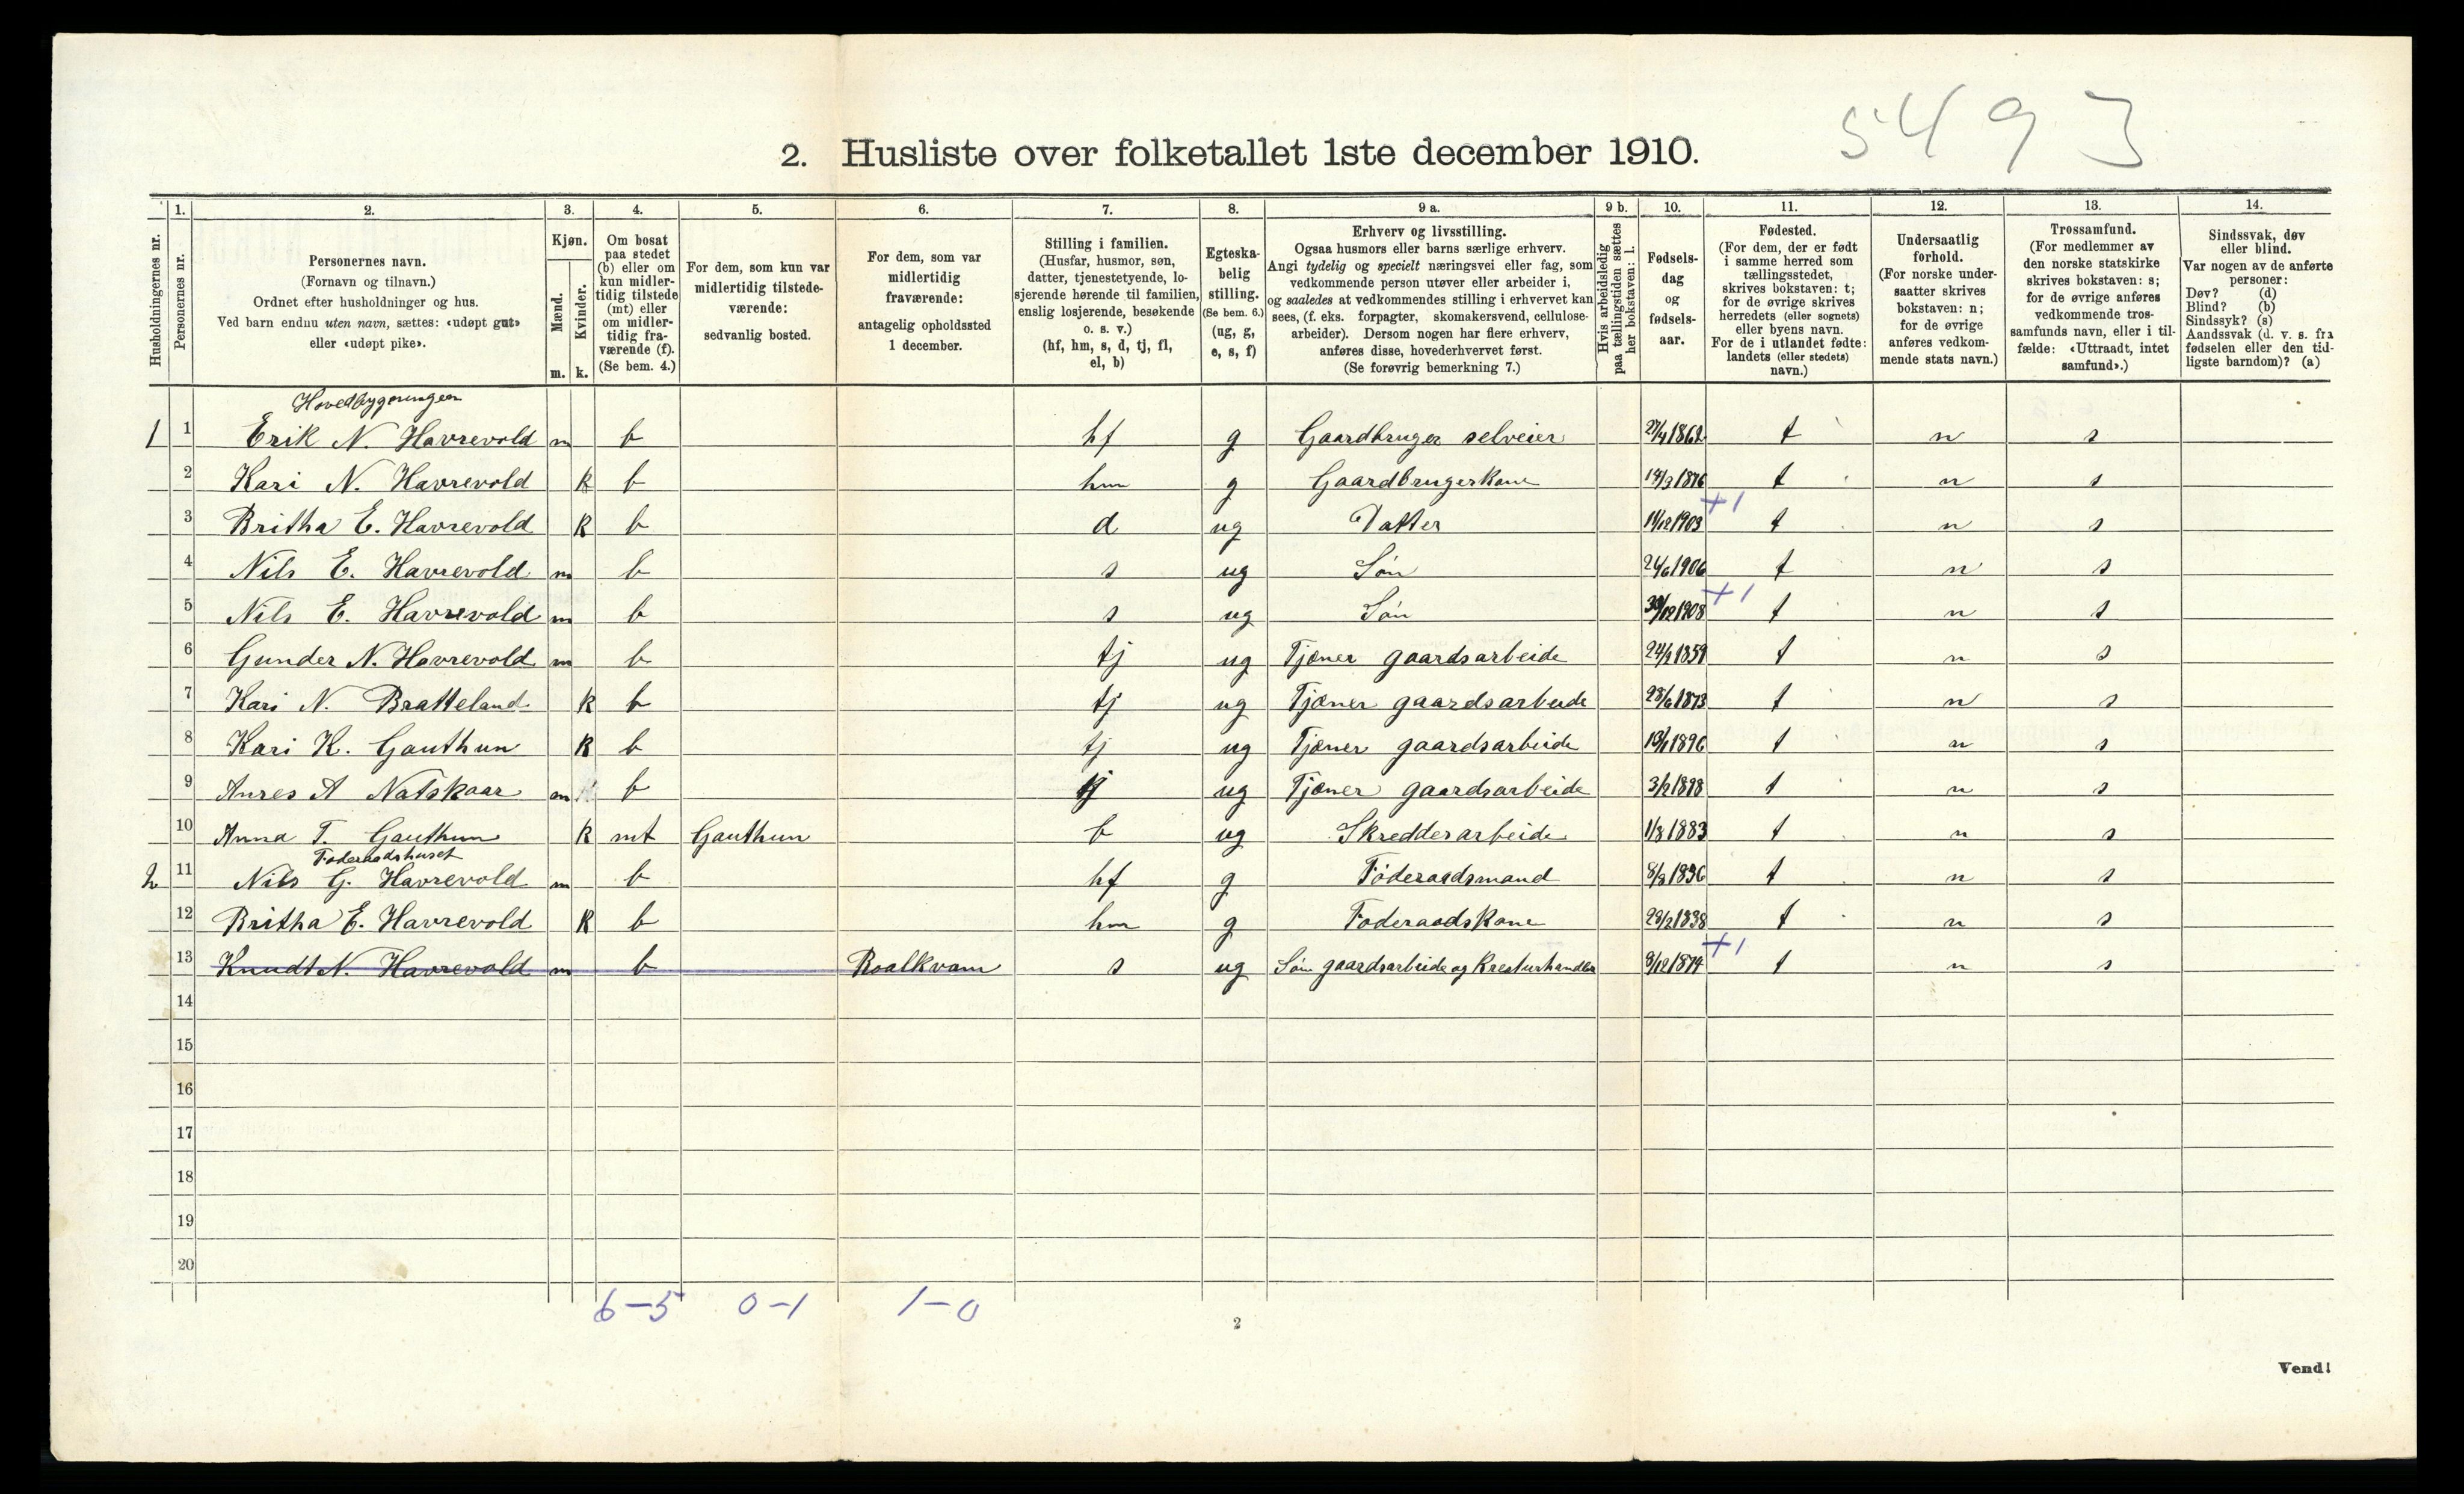 5493
2. Husliste over folketallet 1ste december 1910.
Husholdningernes nr.
1.
Personernes nr.
2.
Personernes navn.
(Fornavn og tilnavn.)
Ordnet efter husholdninger og hus.
Ved barn endnu uten navn, sættes: «udøpt gut»
eller «udøpt pike».
3.
Kjøn.
Mænd.
Kvinder.
m. k.
4.
Om bosat
paa stedet
(b) eller om
kun midler-
tidig tilstede
(mt) eller
om midler-
tidig fra-
værende (f).
(Se bem. 4.)
5.
For dem, som kun var
midlertidig tilstede-
værende:
sedvanlig bosted.
6.
For dem, som var
midlertidig
fraværende:
antagelig opholdssted
1 december.
7.
Stilling i familien.
(Husfar, husmor, søn,
datter, tjenestetyende, lo-
sjerende hørende til familien,
enslig losjerende, besøkende
o. s. v.)
(hf, hm, s, d, tj, fl,
el, b)
8.
Egteska-
belig
stilling.
(Se bem. 6.)
(ug, g,
e, s, f)
9 a.
Erhverv og livsstilling.
Ogsaa husmors eller barns særlige erhverv.
Angi tydelig og specielt næringsvei eller fag, som
vedkommende person utøver eller arbeider i,
og saaledes at vedkommendes stilling i erhvervet kan
sees, (f. eks. forpagter, skomakersvend, cellulose-
arbeider). Dersom nogen har flere erhverv,
anføres disse, hovederhvervet først.
(Se forøvrig bemerkning 7.)
9 b.
Hvis arbeidsledig
paa tællingstiden sættes
her bokstaven: l.
10.
Fødsels-
dag
og
fødsels-
aar.
11.
Fødested.
(For dem, der er født
i samme herred som
tællingsstedet,
skrives bokstaven: t;
for de øvrige skrives
herredets (eller sognets)
eller byens navn.
For de i utlandet fødte:
landets (eller stedets)
navn.)
12.
Undersaatlig
forhold.
(For norske under-
saatter skrives
bokstaven: n;
for de øvrige
anføres vedkom-
mende stats navn.)
13.
Trossamfund.
(For medlemmer av
den norske statskirke
skrives bokstaven: s;
for de øvrige anføres
vedkommende tros-
samfunds navn, eller i til-
fælde: «Uttraadt, intet
samfund».)
14.
Sindssvak, døv
eller blind.
Var nogen av de anførte
personer:
Døv? (d)
Blind? (b)
Sindssyk? (s)
Aandssvak (d. v. s. fra
fødselen eller den tid-
ligste barndom)? (a)
Hovedbygningen
1 1 Erik N. Havrevold m b hf g Gaardbruger selveier 27/4 1862 t n s
2 Kari N. Havrevold k b hm g Gaardbrugerkone 14/3 1876 t n s
3 Britha E. Havrevold k b d ug Datter 14/12 1903 +1 t n s
4 Nils E. Havrevold m b s ug Søn 24/6 1906 t n s
5 Nils E. Havrevold m b s ug Søn 30/12 1908 +1 t n s
6 Gunder N. Havrevold m b tj ug Tjener gaardsarbeide 24/2 1859 t n s
7 Kari N. Bratteland k b tj ug Tjener gaardsarbeide 28/6 1873 t n s
8 Kari K. Gauthun k b tj ug Tjener gaardsarbeide 13/1 1896 t n s
9 Anres A Natskaar m b tj ug Tjener gaardsarbeide 3/2 1898 t n s
10 Anna T. Gauthun k mt Gauthun b ug Skredderarbeide 1/8 1883 t n s
Føderaadshuset
2 11 Nils G. Havrevold m b hf g Føderaadsmand 8/3 1836 t n s
12 Britha E. Havrevold k b hm g Føderaadskone 29/2 1838 t n s
13 Knudt N. Havrevold m b Roalkvam s ug Søn gaardsarbeide og kreaturhandler 9/12 1874 +1 t n s
14
15
16
17
18
19
20
6-5 0-1 1-0
2
Vend!